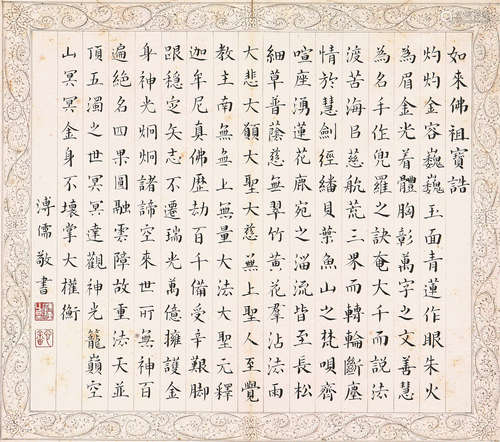 如來佛祖寶誥
灼灼金容巍巍玉面青蓮作眼朱火
為眉金光着體胸彰萬字之文善慧
為名手作兜羅之訣奄大千而說法
渡苦海㠯慈航荒三界而轉輪斷塵
情於慧劍經繙貝葉魚山之梵唄齊
喧座湧蓮花鹿宛之淄流皆至長松
細草普蔭慈無翠竹黃花羣沾法雨
大悲大願大聖大慈無上聖人至覺
教主南無無上無量大法大聖元釋
迦牟尼真佛歷劫百千備受辛艱脚
跟穩定矢志不遷瑞光萬億擁護金
身神光炯炯諸諦空來世所無神百
遍絕名四果圓融雲障故重法天並
頂五濁之世冥冥達觀神光籠巔空
山冥冥金身不壞掌大權衡
溥儒敬書